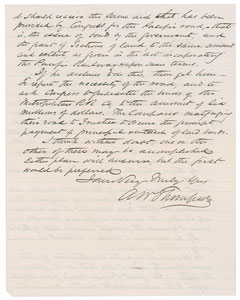 it should receive the same aid that has been
provided by Congress for the Pacific road, that
is, the issue of bonds by the government, and
the grant of Sections of land to the same amount
and extent as given in the act incorporating
the Pacific Railway upon same terms.
If he declines this, then get him
to report the necessity of the road, and to
ask Congress to guarantee the bonds of the
Metropolitan RR Co to the amount of six
millions of dollars. The Company mortgaging
their road to Trustees to secure the prompt
payment of principal interest of said bonds.
I think without doubt one or the
other of these may be accomplished
Either plan will answer but the first
would be preferred
I am Very Truly Yrs
A W Thompson